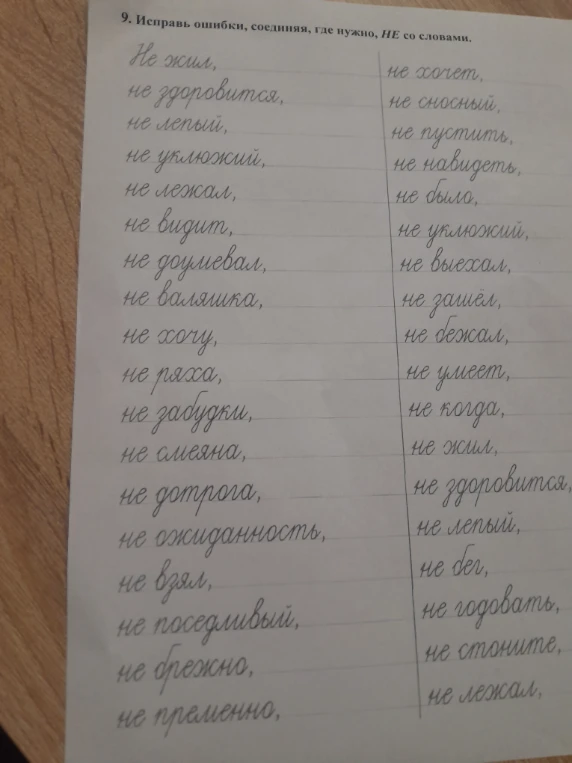 9. Исправь ошибки, соединяя, где нужно, НЕ со словами.
Не жил,
не здоровится,
не лепый,
не уклюжий,
не лежал,
не видит,
не доумевал,
не валяшка,
не хочу,
не ряха,
не забудки,
не смеяна,
не дотрога,
не ожиданность,
не взял,
не поседливый,
не брежно,
не пременно,
не хочет,
не сносный,
не пустить,
не навидеть,
не было,
не уклюжий,
не выехал,
не зашёл,
не бежал,
не умеет,
не когда,
не жил,
не здоровится,
не лепый,
не бег,
не годовать,
не стоните,
не лежал,